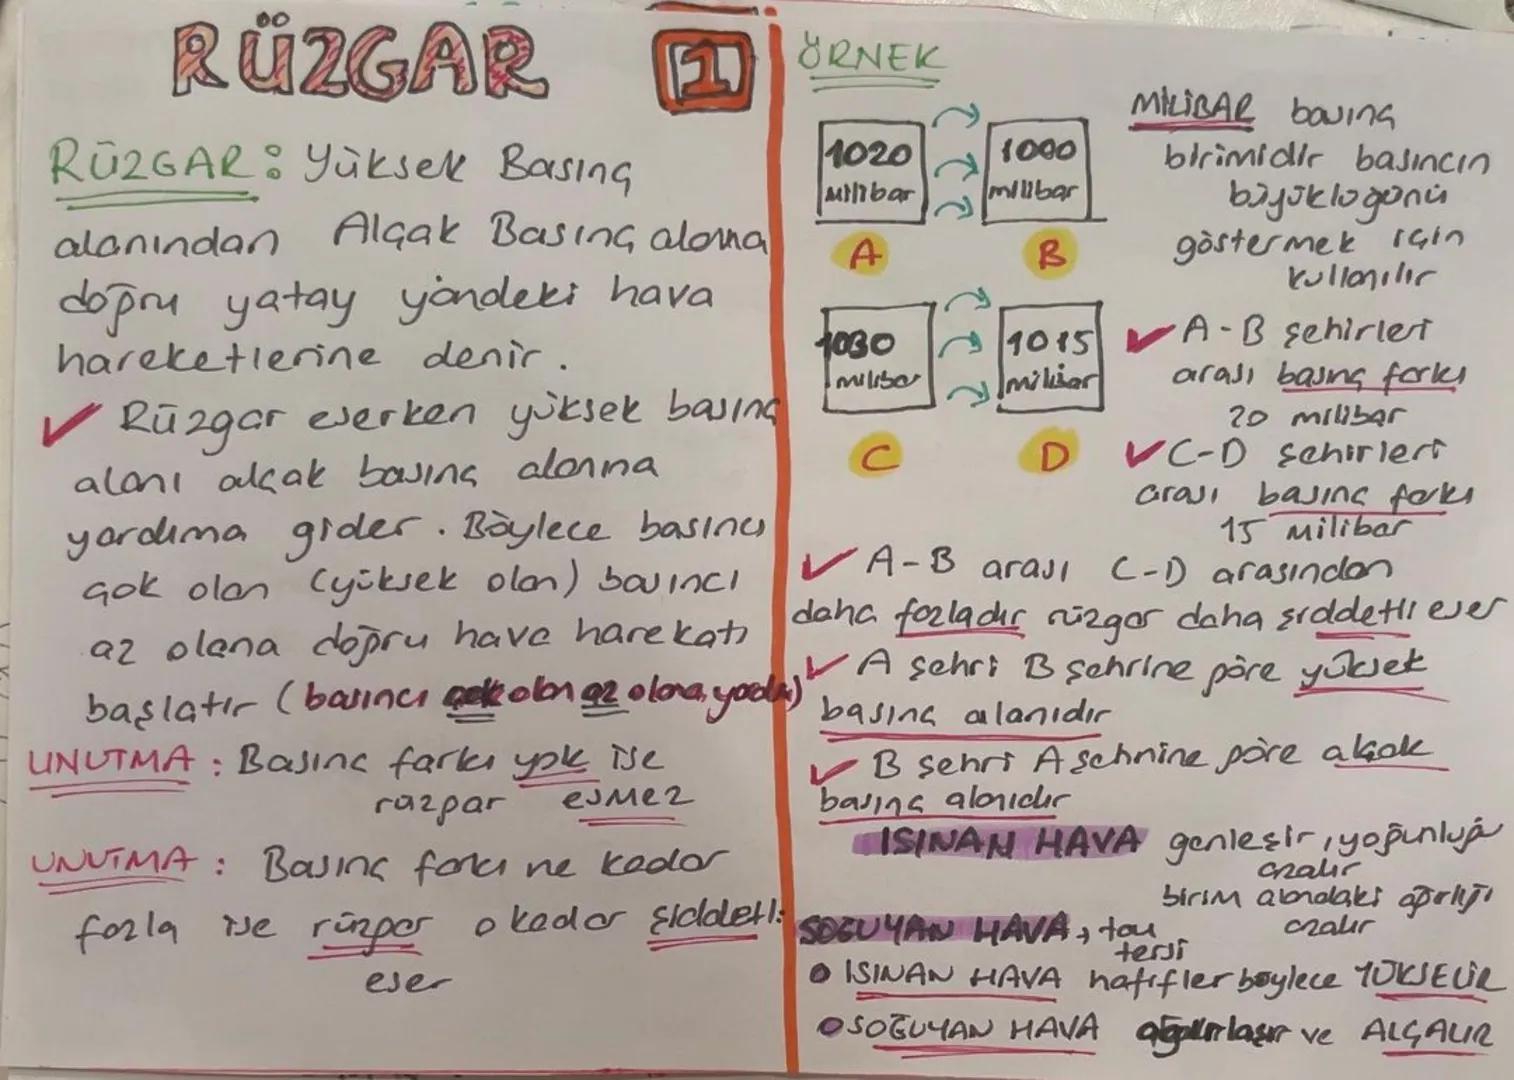 RÜZGAR 1
RÜZGAR: Yüksek Basınç
alanından Alçak Basınç alanına
doğru yatay yöndeki hava
hareketlerine denir.
✓ Rüzgar eserken yüksek basınç
alanı alçak basınç alanına
yardıma gider. Böylece basıncı
çok olan (yüksek olan) basıncı
az olana doğru hava harekatı
başlatır (basıncı çok olan az olana yardım)
UNUTMA: Basınç farkı yok ise
rüzgar esmez
UNUTMA: Basınç farkı ne kadar
fazla ise rüzgar o kadar şiddetli
eser
ÖRNEK
1020 milibar
1000 milibar
A B
1030 milibar
1015 milibar
C D
MİLİBAR basınç
birimidir basıncın
büyüklüğünü
göstermek için
kullanılır
✓ A-B şehirleri
arası basınç farkı
20 milibar
✓ C-D şehirleri
arası basınç farkı
15 Milibar
✓ A-B arası C-D arasından
daha fazladır rüzgar daha şiddetli eser
✓ A şehri B şehrine göre yüksek
basınç alanıdır
✓ B şehri A şehrine göre alçak
basınç alanıdır
ISINAN HAVA genleşir, yoğunluğu
azalır
birim alandaki ağırlığı
azalır
SOĞUYAN HAVA, tam
tersi
• ISINAN HAVA hafifler böylece YÜKSELİR
• SOĞUYAN HAVA ağırlaşır ve ALÇALIR